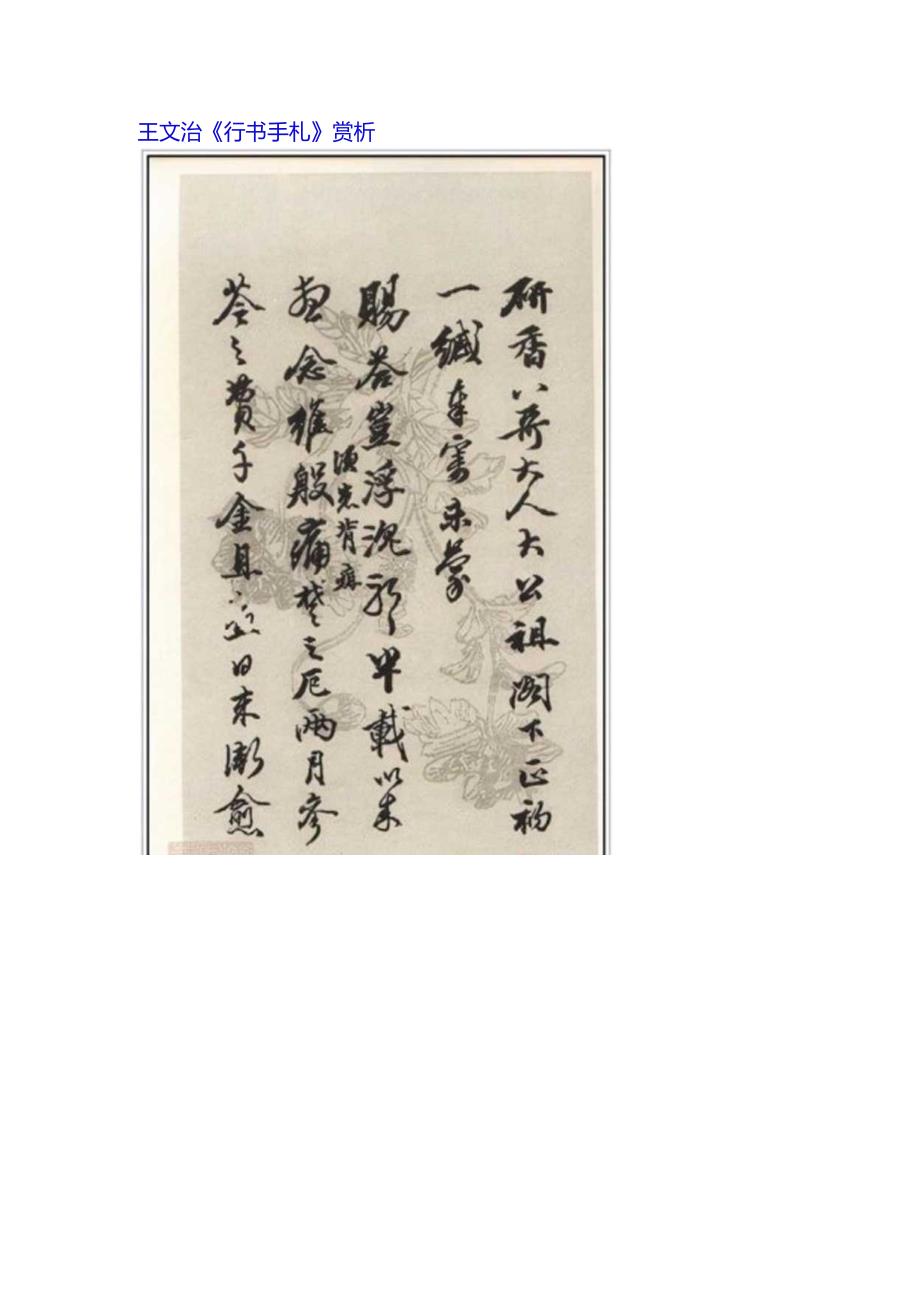 王文治《行书手札》赏析
研香八哥大人大公祖阁下正初
一缄奉寄未蒙
赐答岂浮沉耶半载以来
念维艰痛楚之厄两月参
须患背疽
苓之费千金且 日来渐愈